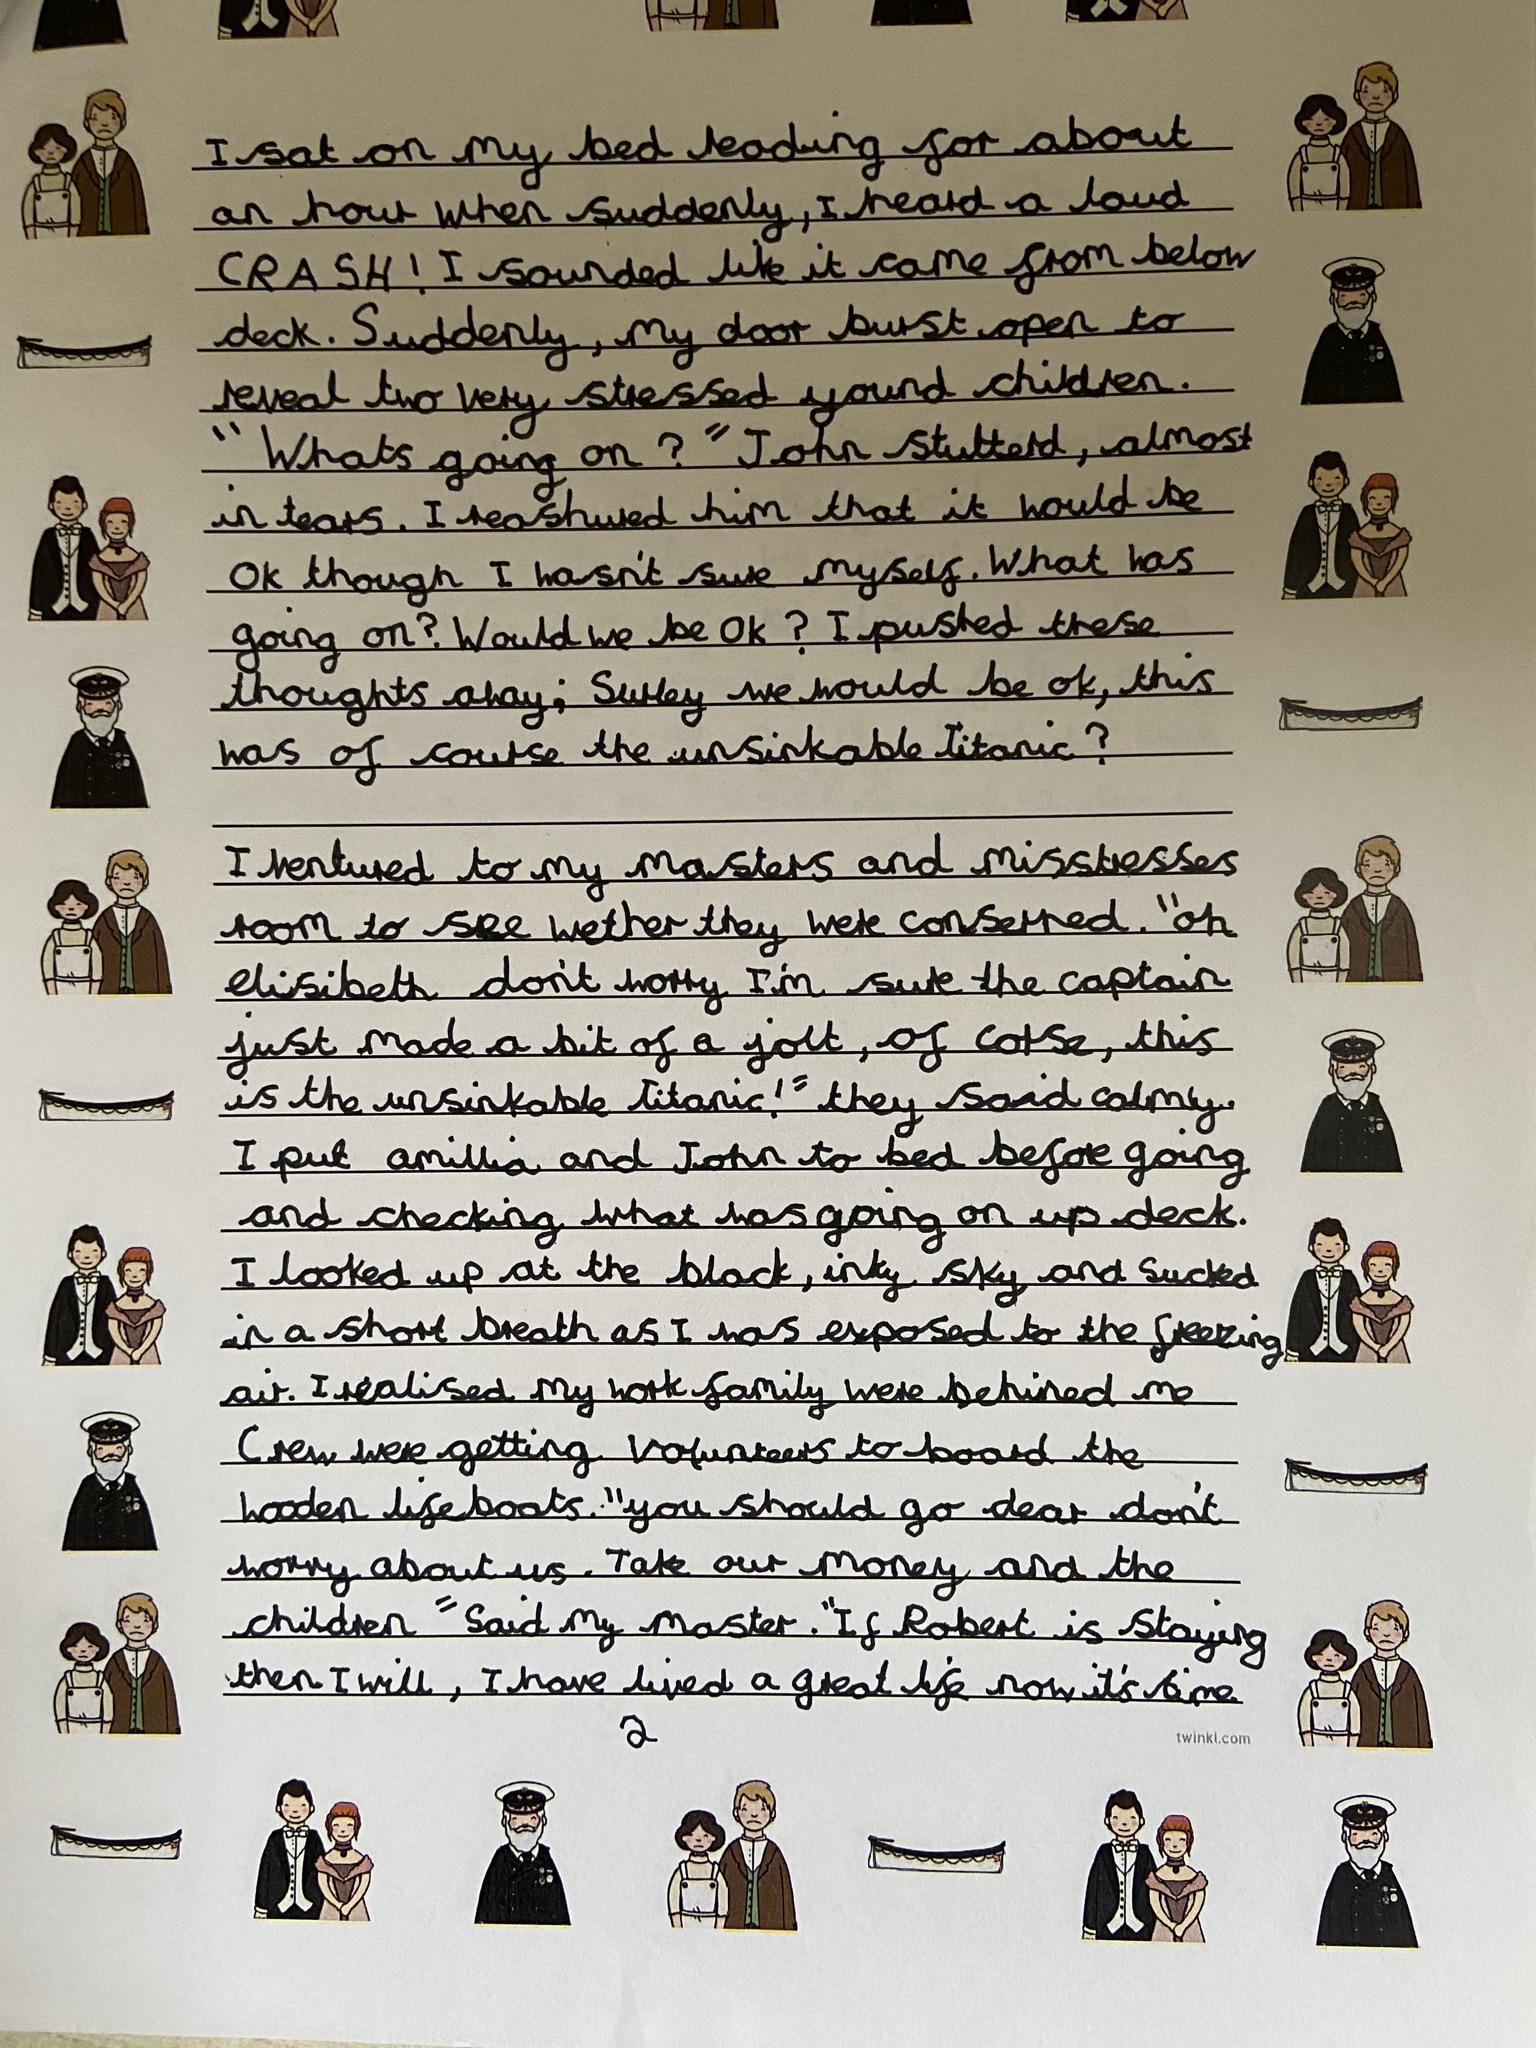 I sat on my bed reading for about
an hour when suddenly, I heard a loud
CRASH! I sounded like it came from below
deck. Suddenly, my door burst open to
reveal two very stressed yound children.
"Whats going on?" John stutterd, almost
in tears. I reashured him that it would be
Ok though I wasn't sure myself. What was
going on? Would we be Ok? I pushed these
thoughts away; Surley we would be ok, this
was of course the unsinkable Titanic?
I ventured to my masters and misstresses
room to see wether they were conserned. "oh
elisibeth don't worry I'm sure the captain
just made a bit of a jolt, of corse, this
is the unsinkable Titanic!" they said calmy.
I put amillia and John to bed before going
and checking what was going on up deck.
I looked up at the black, inky sky and Sucked
in a short breath as I was exposed to the freezing
air. I realised my work family were behined me
Crew were getting volunteers to board the
wooden lifeboats. "you should go dear don't
worry about us. Take our money and the
children" Said my master. "If Robert is staying
then I will, I have lived a great life now it's time
2
twinkl.com